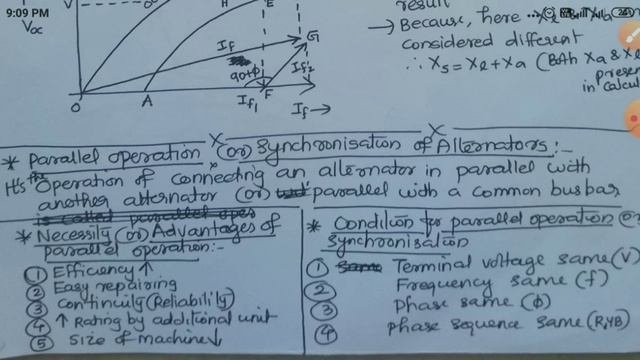 9:09 PM
V
Voc
H
E
If
G
90+ϕ
If2
O
A
If1
F
If →
result
→ Because, here
considered different
∴ Xs = Xl + Xa (Both Xa & Xl
present
in calcul
* Parallel operation (or) Synchronisation of Alternators:-
It's the Operation of connecting an alternator in parallel with
another alternator (or) parallel with a common busbar
is called parallel oper
* Necessity (or) Advantages of
parallel operation:-
① Efficiency ↑
② Easy repairing
③ continuity (Reliability)
④ ↑ Rating by additional unit
⑤ Size of machine ↓
* Condition for parallel operation (or)
synchronisation
① Terminal voltage same (V)
② Frequency same (f)
③ Phase same (ϕ)
④ phase sequence same (RYB)